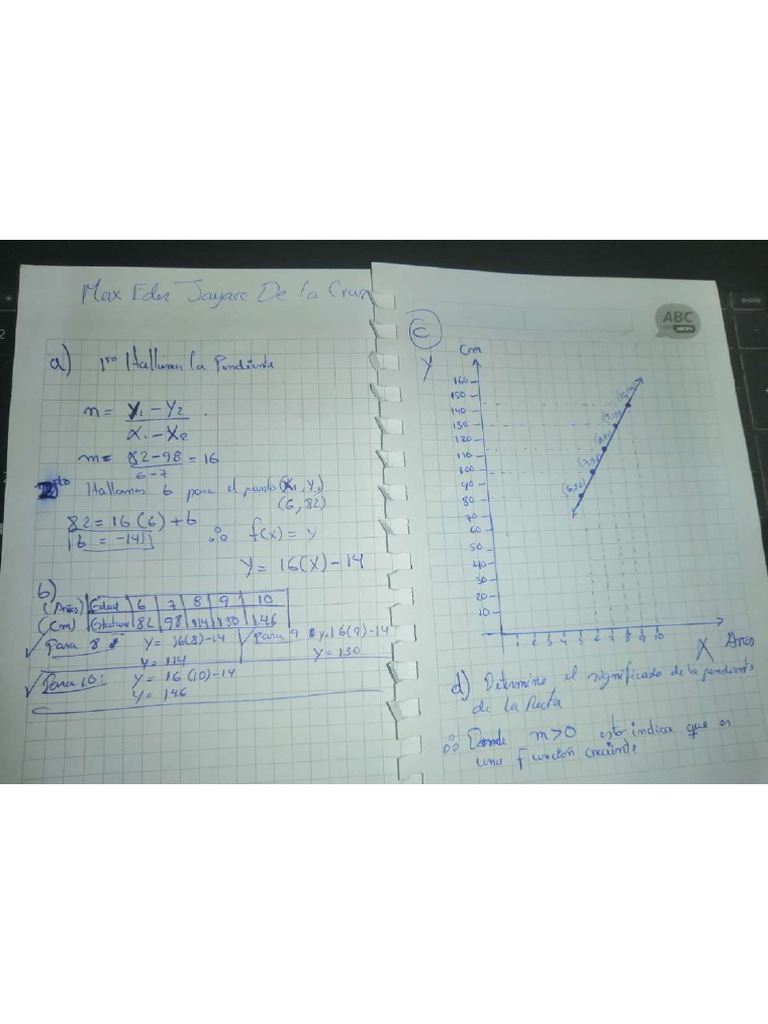 Max Eder Jayacc De la Cruz
a) 1ro Hallamos la Pendiente
m = Y1 - Y2
X1 - X2
m = 82-98 = 16
6-7
Hallamos b para el punto (X1, Y1)
(6, 82)
82 = 16(6) + b
b = -14
∴ f(x) = y
y = 16(x) - 14
b)
(Años) Edad 6 7 8 9 10
(Cm) Estatura 82 98 114 130 146
Para 8: y = 16(8)-14
y = 114
Para 9: y=16(9)-14
y = 130
Para 10: y = 16(10)-14
y = 146
ABC
C
Y Cm
160
150
140
130
120
110
100
90
80
70
60
50
40
30
20
10
1 2 3 4 5 6 7 8 9 10
X Años
d) Determine el significado de la pendiente
de la Recta
∴ Donde m>0 esto indica que es
una función creciente